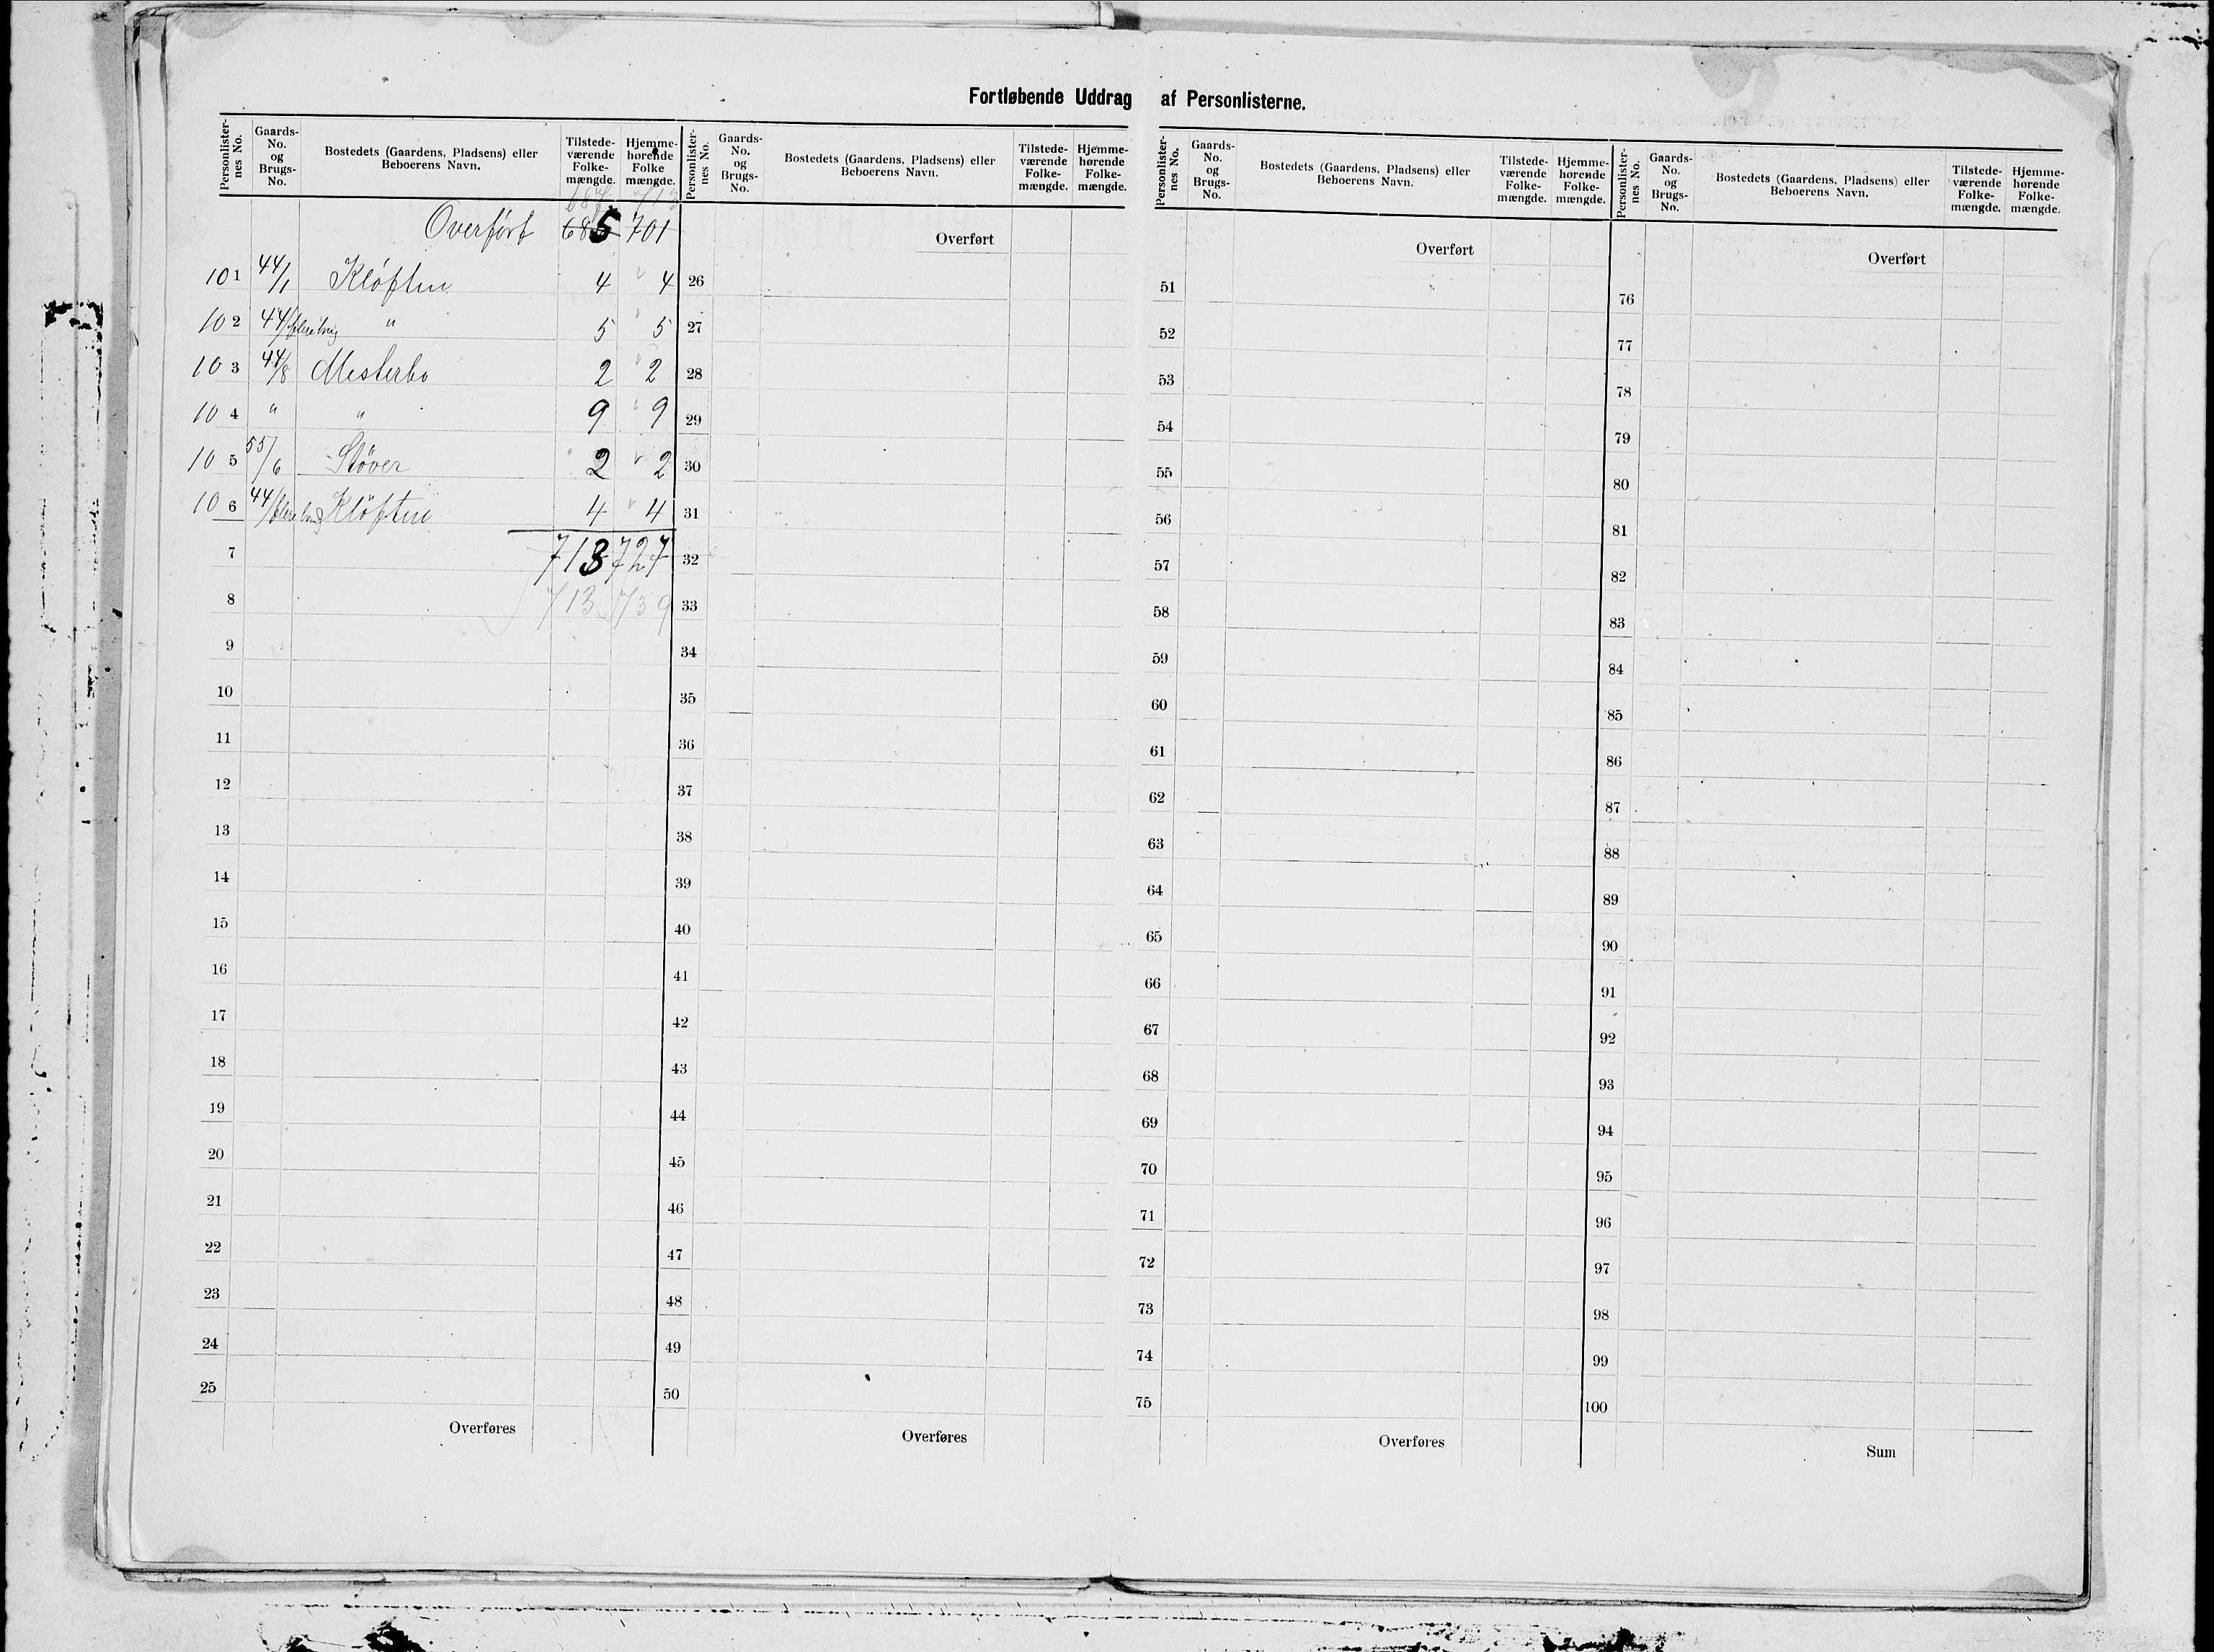 Fortløbende Uddrag af Personlisterne.
Personlister-nes No. Gaards-No. og Brugs-No. Bostedets (Gaardens, Pladsens) eller Beboerens Navn. Tilstede-værende Folke-mængde. Hjemme-hørende Folke mængde.
687 713
Overført 685 701
101 44/1 Kløften 4 4
102 44/flere brug " 5 5
103 44/8 Mesterbo 2 2
104 " " 9 9
105 55/6 Støver 2 2
106 44/flere brug Kløften 4 4
7 713 727
8 713 739
9
10
11
12
13
14
15
16
17
18
19
20
21
22
23
24
25
Overføres
Personlister-nes No. Gaards-No. og Brugs-No. Bostedets (Gaardens, Pladsens) eller Beboerens Navn. Tilstede-værende Folke-mængde. Hjemme-hørende Folke-mængde.
Overført
26
27
28
29
30
31
32
33
34
35
36
37
38
39
40
41
42
43
44
45
46
47
48
49
50
Overføres
Personlister-nes No. Gaards-No. og Brugs-No. Bostedets (Gaardens, Pladsens) eller Beboerens Navn. Tilstede-værende Folke-mængde. Hjemme-hørende Folke-mængde.
Overført
51
52
53
54
55
56
57
58
59
60
61
62
63
64
65
66
67
68
69
70
71
72
73
74
75
Overføres
Personlister-nes No. Gaards-No. og Brugs-No. Bostedets (Gaardens, Pladsens) eller Beboerens Navn. Tilstede-værende Folke-mængde. Hjemme-hørende Folke-mængde.
Overført
76
77
78
79
80
81
82
83
84
85
86
87
88
89
90
91
92
93
94
95
96
97
98
99
100
Sum